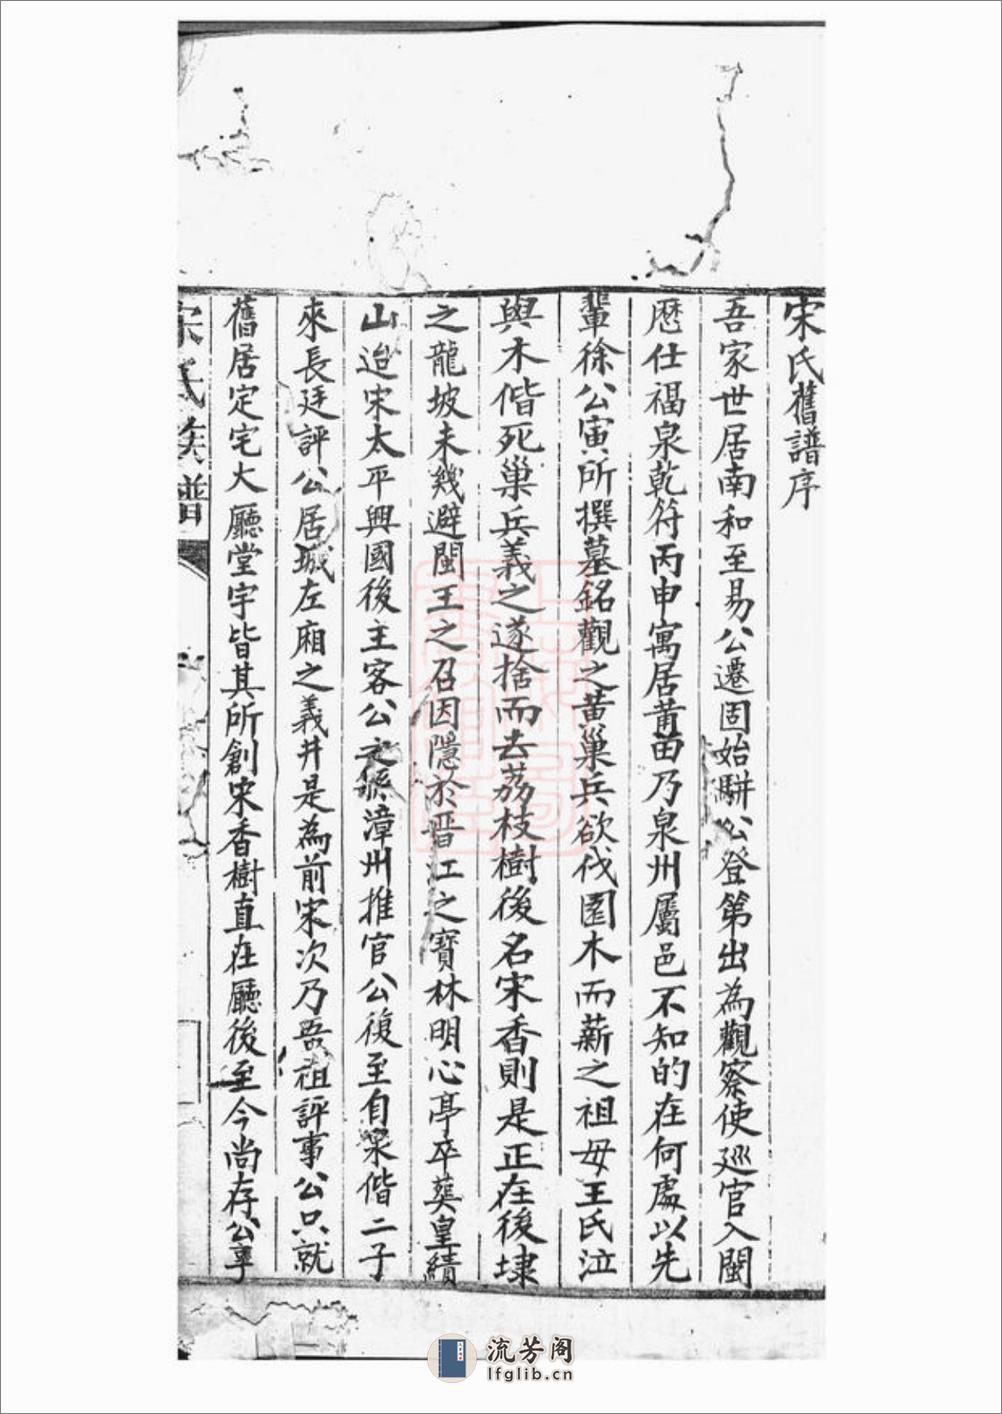 宋氏舊譜序
吾家世居南和至易公遷固始駢公登第出為觀察使廵官入閩
歴仕福泉乾符丙申寓居莆田乃泉州屬邑不知的在何處以先
輩徐公寅所撰墓銘觀之黄巢兵欲伐園木而薪之祖母王氏泣
與木偕死巢兵義之遂捨而去荔枝樹後名宋香則是正在後埭
之龍坡未幾避閩王之召因隱於晋江之寳林明心亭卒葬皇績
山迨宋太平興國後主客公之孫漳州推官公復至自泉偕二子
來長廷評公居城左廂之義井是為前宋次乃吾祖評事公只就
舊居定宅大廳堂宇皆其所創宋香樹直在廳後至今尚存公寧
宋氏族譜
流芳阁
lfglib.cn